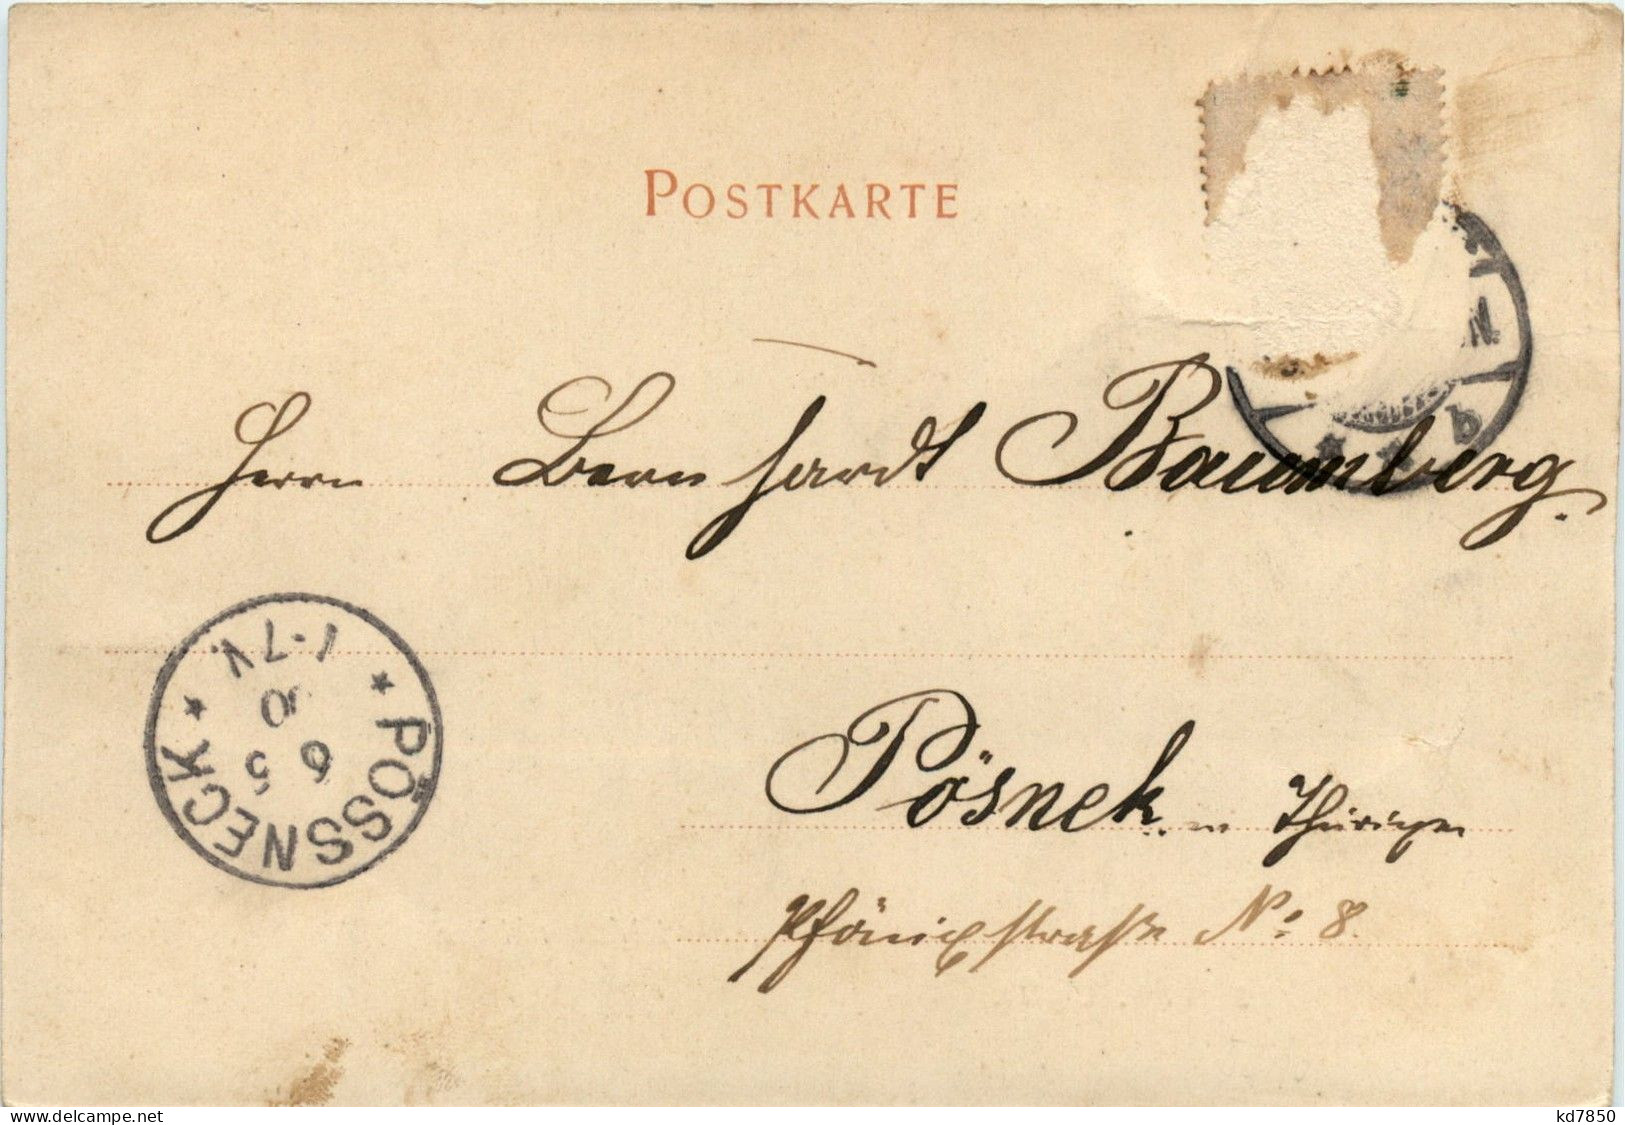 POSTKARTE
Herrn Bernhardt Baumberg.
b
PÖSSNECK
1-7V.
6 5
00
Pösnek in Thüringen
Phönixstraße No 8.
www.delcampe.net
kd7850